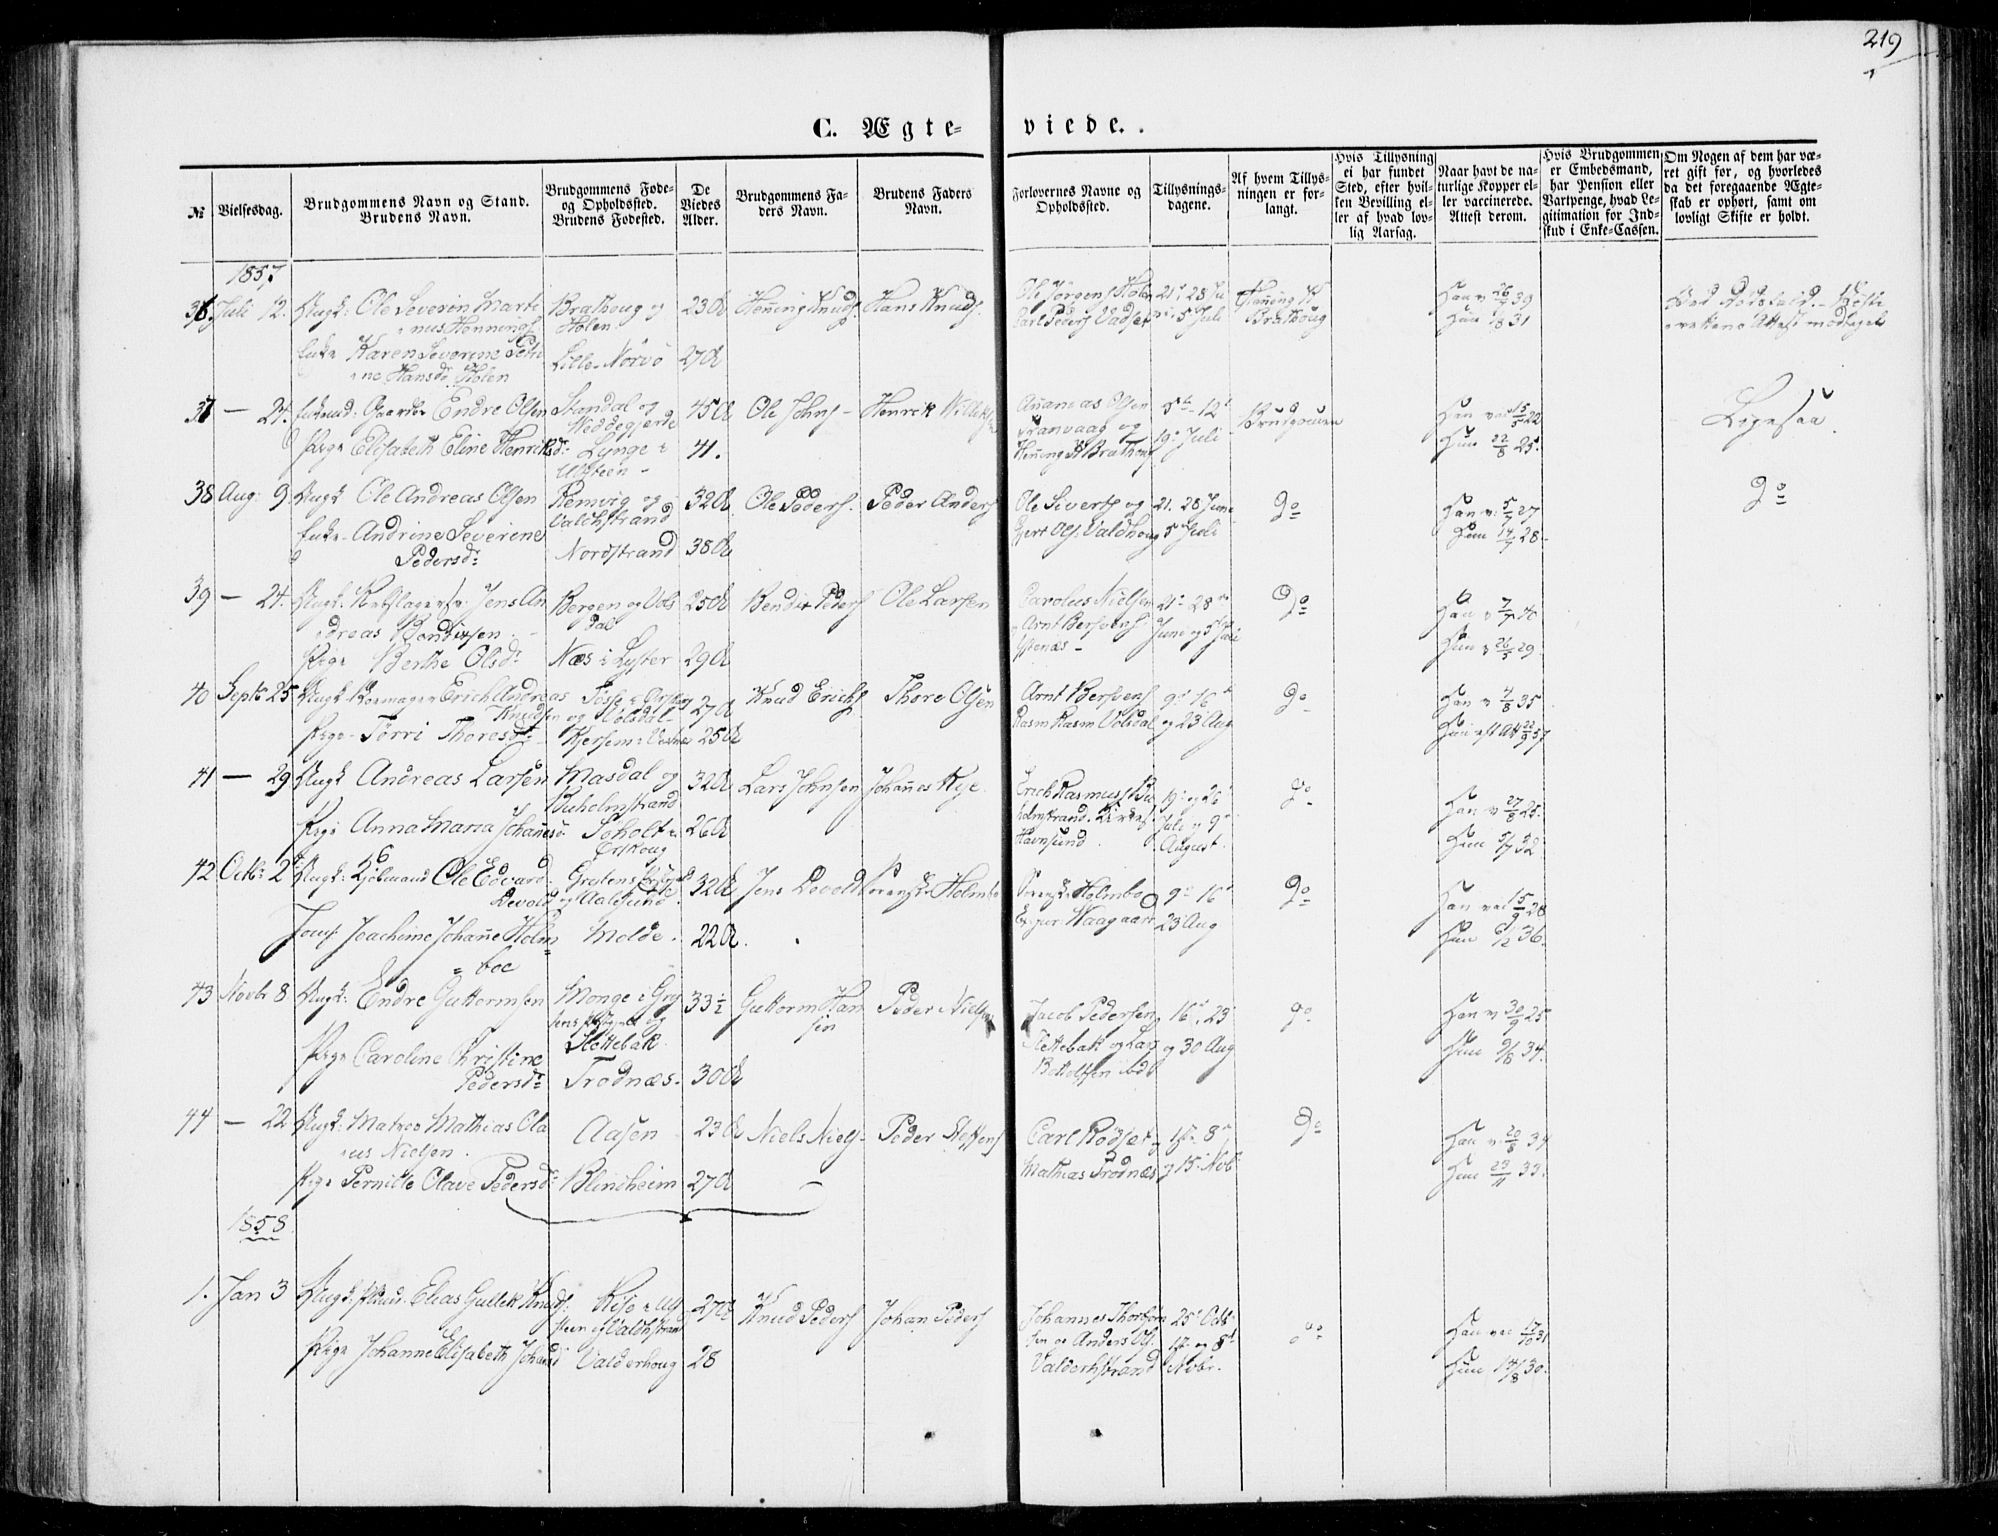 219
C. Ægte- viede.
№
Vielsesdag.
Brudgommens Navn og Stand.
Brudens Navn.
Brudgommens Føde-
og Opholdssted.
Brudens Fødested.
De
Viedes
Alder.
Brudgommens Fa-
ders Navn.
Brudens Faders
Navn.
Forlovernes Navne og
Opholdssted.
Tillysnings-
dagene.
Af hvem Tillys-
ningen er for-
langt.
Hvis Tillysning
ei har fundet
Sted, efter hvil-
ken Bevilling el-
ler af hvad lov-
lig Aarsag.
Naar havt de na-
turlige Kopper el-
ler vaccinerede.
Attest derom.
Hvis Brudgommen
er Embedsmand,
har Pension eller
Vartpenge, hvad Le-
gitimation for Ind-
skud i Enke-Cassen.
Om Nogen af dem har væ-
ret gift før, og hvorledes
da det foregaaende Ægte-
skab er ophørt, samt om
lovligt Skifte er holdt.
1857
36 Juli 12. Ungk: Ole Severin Marti
nus Hennings
Enke Karen Severine Petri
ne Hansd. Holen
Brathoug og
Holen
Lille Nørvø
23 Henning Knuds Hans Knuds.
27
Ole Jørgens Holen
Carl Peders Vadset
21, 28 Ju
5 Juli
Henning
Brathoug
Han v 26/7 39
Hun 31
37 — 24. Enkemd: Gaardbr Endre Olsen
Pige Elisabeth Eline Henriksdr
Standal og
Weddegjerde
Lynge i
Ulsteen
45
41.
Ole Johns Henrik
Ananias Olsen
Tranvaag og
Henning K Brathoug
5te 12t
19 Juli
Brudgommen
Han vac 15/5 22
Hun 22/8 25.
38 Aug: 9 Ungk Ole Andreas Olsen
Enke Andrine Severine
Pedersdr
Remvig og
Valdhstrand
Nordstrand
32
38
Ole Peders. Peder Anders
Ole Siverts og
Gjert Ols. Valdhoug
21. 28 Juni
5 Juli
do
Han v: 5/7 27
Hun 14/7 28
do
39 — 24. Ungk. Rebslagersv. Jens An
dreas Bendixsen
Pige Berthe Olsdr
Bergen og Vols
dal
Næs i Lyster
25
29
Bendix Peders Ole Larsen
Carolus Nielsen
Arnt Bersvens
Ystenæs
21 28
Juni og 5 Juli
do
Han v 7/7 40
Hun v 26/5 29
40 Septbr 25 Ungk Erich Andreas
Knudsen
Pige Tørri Thoresdr
Tøsse i Ørskog
og Volsdal
Kjersem i Vestnes
27
25
Knud Erichs Thore Olsen
Arnt Bersvens
Rasm Rasm Volsdal
9 16
og 23 Aug
do
Han v 4/8 35
Hun eft Att 22/9 57
41 — 29 Ungk Andreas Larsen
Pige Anna Maria Johannesd
Masdal og
Buholmstrand
Søholt i
Ørskoug
32
26
Lars Johnsen Johannes Rye
Erich Rasmuss Bu
holmstrand.
Havnsund
19 og 26
Juli og 9
August
do
Han v 27/8 25.
Hun 5/7 32
42 Octbr 2 Ungk: Kjøbmand Ole Edvard
Devold
Jomf Joachime Johanne Holm
boe
Grytens Præstegield
og Aalesund
Molde.
32
22
Jens Devold Holmboe
Holmboe
Waagaard
9 16
23 Aug
do
Han vac 15/9 28
Hun 6/12 36.
43 Novbr 8 Ungk: Endre Guttormsen
Pige Caroline Christine
Pedersdr
Monge i Gry
tens Præstegield og
Slettebak
Trodnæs
33½
30
Guttorm Han
sen
Peder Nielsen
Jacob Pedersen
Slettebak og Lars
Bottolfsen ibd
16, 23
og 30 Aug
do
Han v 30/9 25
Hun 9/6 34.
44 — 22 Ungk: Matros Mathias Ola
us Nielsen.
Pige Pernille Olave Pedersdr
Aasen
Blindheim
23
27
Niels Niels Peder Steffens
Carl Rødset
Mathias Trodnæs
1ste 8
og 15 Nov
do
Han v. 20/8 34
Hun 23/11 33.
1858
1. Jan 3 Ungk: Elias Gullek Knuds:
Pige Johanne Elisabeth Johansd
Risø i Ul
steen og Valdhstrand
Valderhoug
27
28
Knud Peders Johan Peders
Johannes Thorbjørn
sen og Anders Ols.
Valderhstrand
25 Octb
1ste og 8de
Novbr.
do
Han vac 17/10 31
Hun 14/8 30.